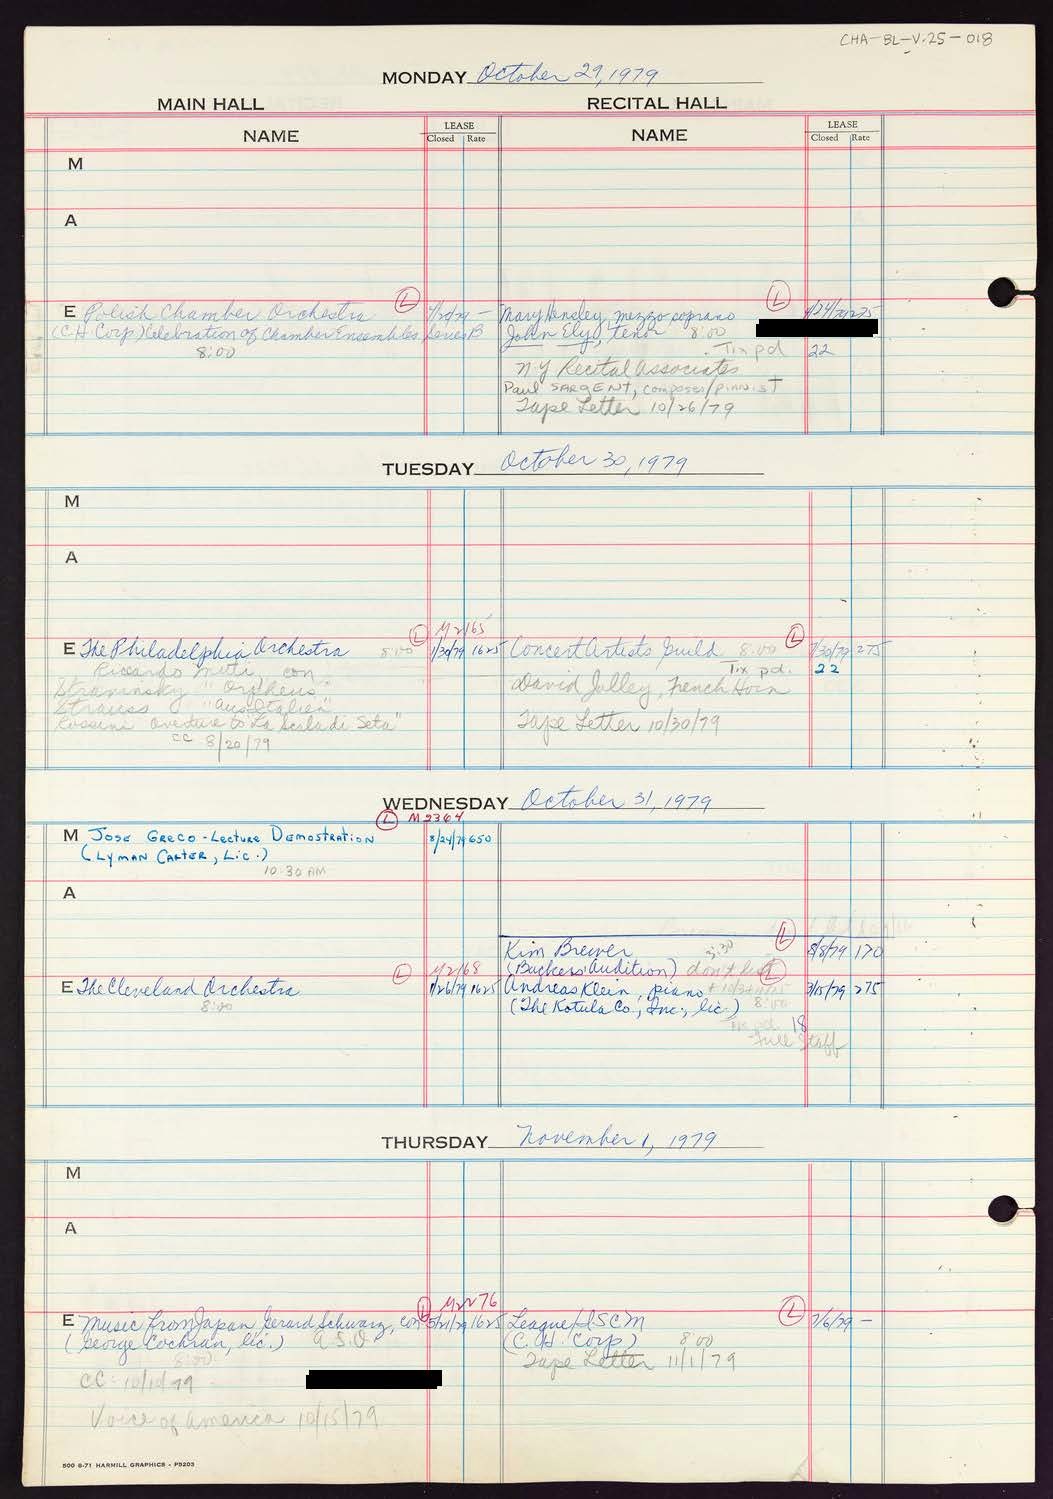 CHA-BL-V.25-018
MONDAY October 29, 1979
MAIN HALL RECITAL HALL
NAME LEASE Closed Rate NAME LEASE Closed Rate
M
A
E Polish Chamber Orchestra (L) –
(CH Corp) Celebration of Chamber Ensembles Series B
8:00
Mary Hensley, mezzo soprano (L) 275
John Ely, tenor 8:00
Tix pd 22
NY Recital Associates
Paul SARGENT, composer/pianist
Tape Letter 10/26/79
TUESDAY October 30, 1979
M
A
M2165
E The Philadelphia Orchestra 8:00 (L) 1/30/79 1625
Riccardo Muti, con
Stravinsky "Orpheus"
Strauss "Aus Italien"
Rossini overture to "La Scala di Seta"
cc 8/20/79
Concert Artists Guild 8:00 (L) 7/30/79 275
Tix pd. 22
David Jolley, French Horn
Tape Letter 10/30/79
WEDNESDAY October 31, 1979
(L) M2364
M JOSE GRECO - LECTURE DEMOSTRATION 8/24/79 650
(LYMAN CARTER, Lic.)
10:30 AM
A
Kim Brewer 3:30 (L) 8/8/79 170
(Backers' Audition) don't list
M2168
E The Cleveland Orchestra (L) 1/26/79 1625
8:00
Andreas Klein, piano (L) 3/15/79 275
(The Kotula Co., Inc., lic.) 8:00
Tix pd 18
Full Staff
THURSDAY November 1, 1979
M
A
M2276
E Music from Japan Gerard Schwarz, con (L) 5/21/79 1625
(George Cochran, lic.) A.S.O.
8:00
CC: 10/10/79
Voice of America 10/15/79
League/ISCM (L) 7/6/79 –
(C.H. Corp) 8:00
Tape Letter 11/1/79
500 8-71 HARMILL GRAPHICS - P5203